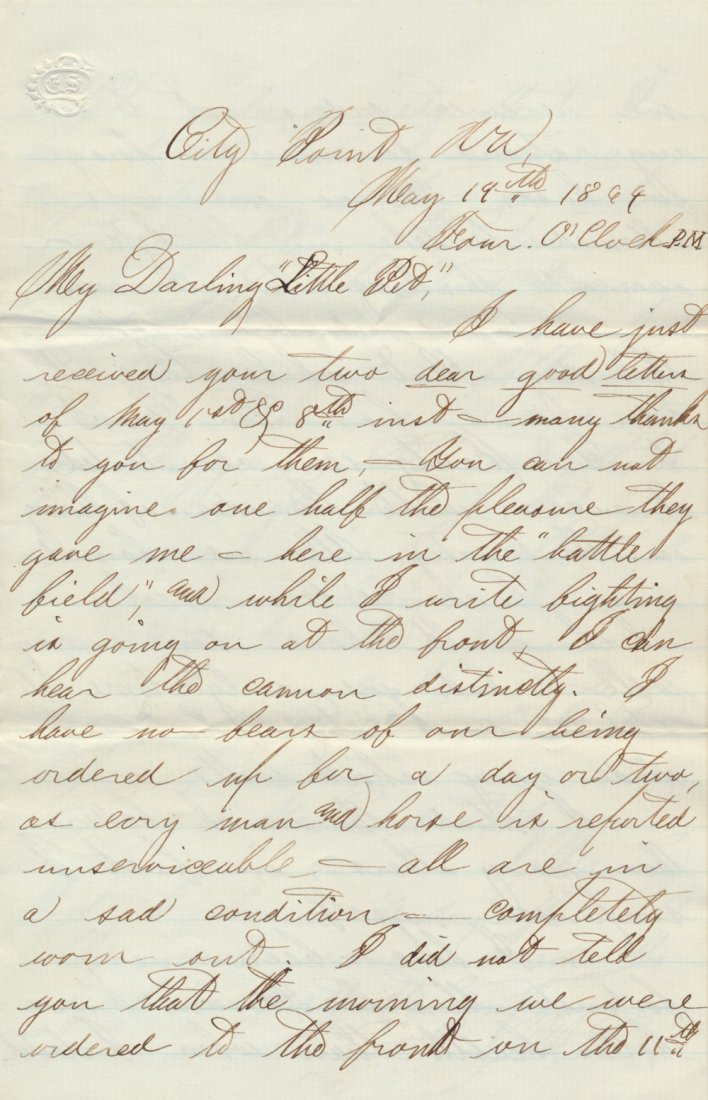 C S
City Point Va,
May 19th 1864
Four. O'Clock P.M
My Darling "Little Pet,"
I have just
received your two dear good letters
of May 1st & 8th inst – many thanks
to you for them, – You can not
imagine one half the pleasure they
gave me – here in the "battle
field", and while I write fighting
is going on at the front, I can
hear the cannon distinctly. I
have no fears of our being
ordered up for a day or two,
as evry man and horse is reported
unserviceable – all are in
a sad condition – completely
worn out. I did not told
you that the morning we were
ordered to the front on the 11th